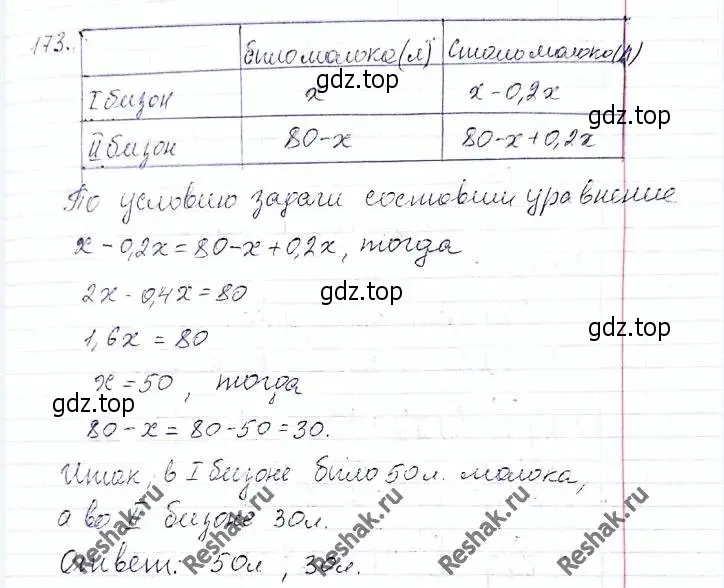 173.
было молока (л) стало молока (л)
I бизон x x - 0,2x
II бизон 80 - x 80 - x + 0,2x
По условию задачи составим уравнение
x - 0,2x = 80 - x + 0,2x, тогда
2x - 0,4x = 80
1,6x = 80
x = 50, тогда
80 - x = 80 - 50 = 30.
Итак, в I бизоне было 50 л. молока,
а во II бизоне 30 л.
Ответ: 50 л, 30 л.
gdz.top
gdz.top
gdz.top
gdz.top
gdz.top
Reshak.ru
Reshak.ru
Reshak.ru
Reshak.ru